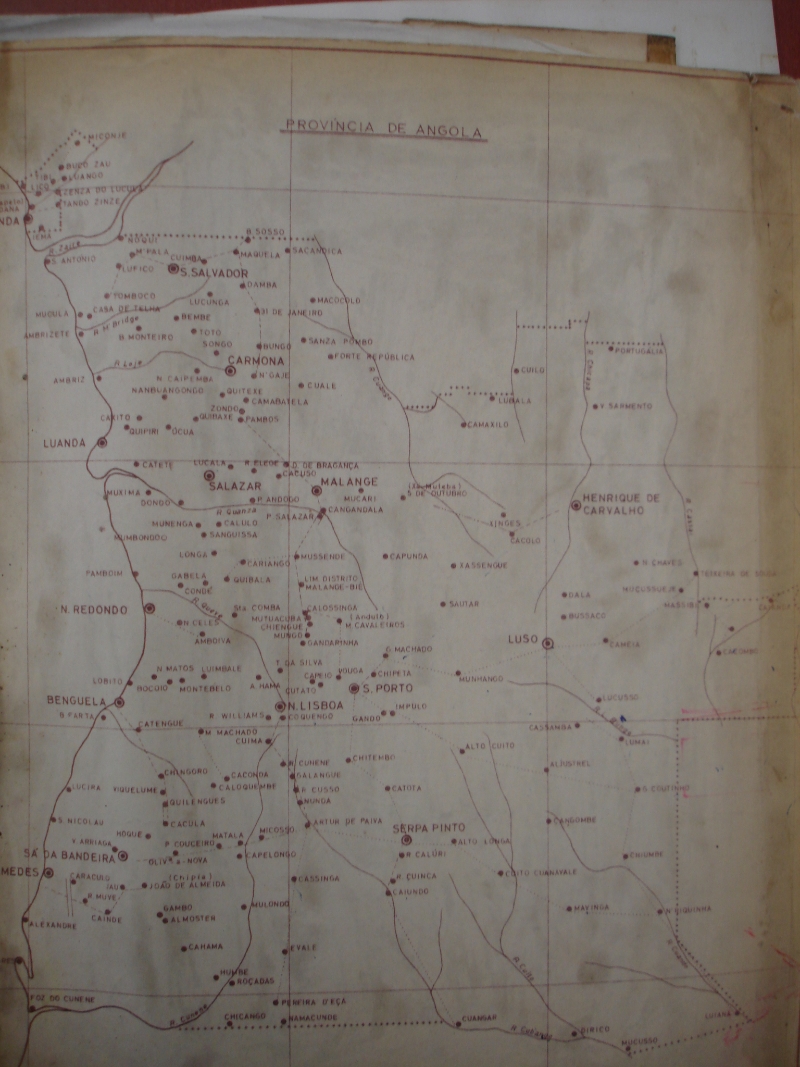 PROVÍNCIA DE ANGOLA
MICONJE
BUCO ZAU
LUANGO
ZENZA DO LUCULA
TANDO ZINZE
NOQUI
B. SOSSO
R. Zaire
S. ANTONIO
M. PALA
CUIMBA
MAQUELA
SACANDICA
LUFICO
S. SALVADOR
DAMBA
TOMBOCO
LUCUNDA
MACOCOLO
MUCULA
CASA DE TELHA
BEMBE
31 DE JANEIRO
R. M Bridge
AMBRIZETE
B. MONTEIRO
TOTO
SANZA POMBO
SONGO
BUNGO
FORTE REPÚBLICA
PORTUGÁLIA
R. Loje
CARMONA
CUILO
AMBRIZ
N. CAIPEMBA
N'GAJE
CUALE
NANBUANGONGO
QUITEXE
CAMABATELA
LUBALA
ZONDO
V. SARMENTO
CAXITO
QUIBAXE
PAMBOS
CAMAXILO
QUIPIRI
ÚCUA
LUANDA
CATETE
LUCALA
D. DE BRAGANÇA
CACUSO
SALAZAR
MALANGE
MUXIMA
MUCARI
5 DE OUTUBRO
HENRIQUE DE
CARVALHO
DONDO
P. ANDOGO
CANGANDALA
R. Quanza
P. SALAZAR
MUNENGA
CALULO
MUMBONDO
SANGUISSA
CACOLO
LONGA
CARIANGO
MUSSENDE
CAPUNDA
XASSENGUE
N. CHAVES
PAMBOIM
GABELA
QUIBALA
LIM DISTRITO
MALANDE-BIÉ
CONDÉ
DALA
N. REDONDO
R. Queve
Sta. COMBA
CALOSSINGA
SAUTAR
MUTUACUBA
(Andulo)
BUSSACO
N. CELES
CHIENGUE
M. CAVALEIROS
AMBOIVA
MUNGO
GANDARINHA
LUSO
CAMEIA
G. MACHADO
T. DA SILVA
N. MATOS
LUIMBALE
VOUGA
CHIPETA
MUNHANGO
LOBITO
BOCUIO
MONTEBELO
A. HAMA
CUTATO
S. PORTO
LUCUSSO
BENGUELA
N. LISBOA
IMPULO
B. FARTA
R. WILLIAMS
COQUENGO
GANDO
CASSAMBA
CATENGUE
M. MACHADO
LUMAI
CUIMA
ALTO CUITO
CHITEMBO
CHINGORO
CACONDA
GALANGUE
ALJUSTREL
LUCIRA
VIQUELUME
CALUQUEMBE
R. CUSSO
CATOTA
G. COUTINHO
QUILENGUES
NUNDA
S. NICOLAU
CACULA
ARTUR DE PAIVA
CANGOMBE
HOQUE
MICOSSO
SERPA PINTO
V. ARRIAGA
P. COUCEIRO
MATALA
ALTO LONGA
SÁ DA BANDEIRA
CAPELONGO
CHIUMBE
MEDES
CARACULO
(Chipia)
CASSINGA
CUITO CUANAVALE
JAU
JOÃO DE ALMEIDA
CAIUNDO
GAMBO
MULONDO
MAVINGA
CAINDE
ALMOSTER
ALEXANDRE
CAHAMA
EVALE
HUMBE
ROÇADAS
R. Cuito
FOZ DO CUNENE
PEREIRA D'EÇA
R. Cunene
CHICANGO
NAMACUNDE
CUANGAR
DIRICO
LUIANA
MUCUSSO